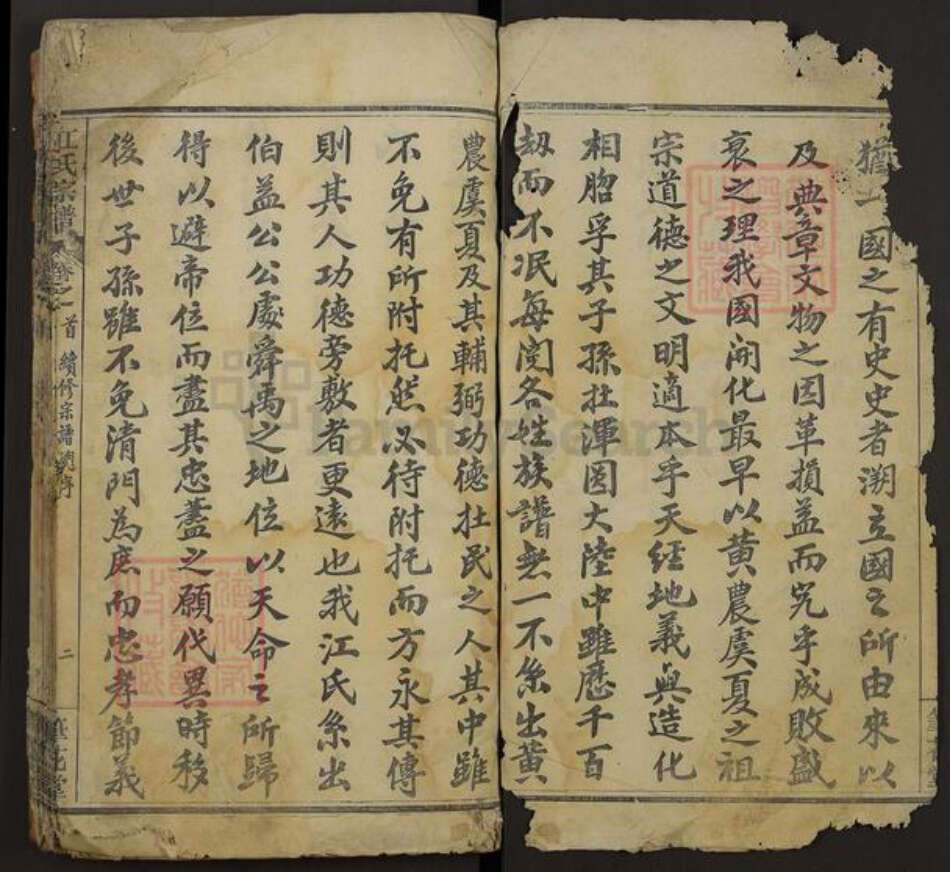 猶　國之有史史者溯立國之所由來以
及典章文物之因革損益而究乎成敗盛
衰之理我國開化最早以黃農虞夏之祖
宗道德之文明適本乎天經地義與造化
相脗孚其子孫在渾圂大陸中雖歷千百
劫而不泯每閱各姓族譜無一不系出黃
農虞夏及其輔弼功德在民之人其中雖
不免有所附托然必待附托而方永其傳
則其人功德旁敷者更遠也我江氏系出
伯益公公處舜禹之地位以天命之所歸
得以避帝位而盡其忠藎之願代異時移
後世子孫雖不免清門為庶而忠孝節義
江氏宗譜 卷之首 續修宗譜 序 二
FamilySearch